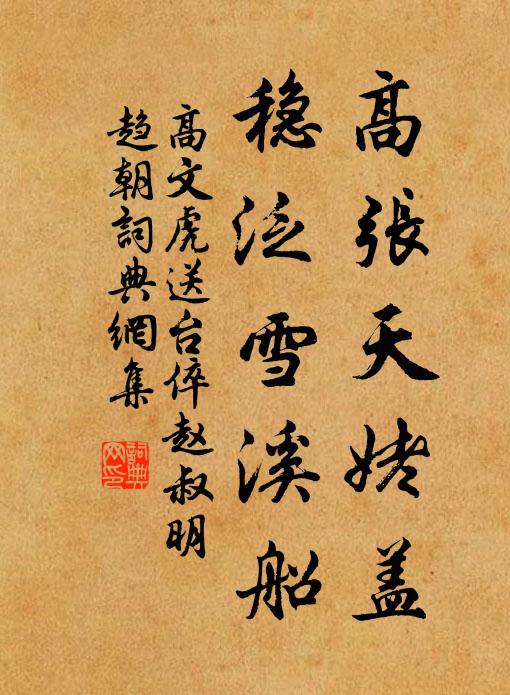 高張天姥蓋
穩泛雪溪船
高文虎送台倅赵叔明
趋朝詞典網集
詞典网印